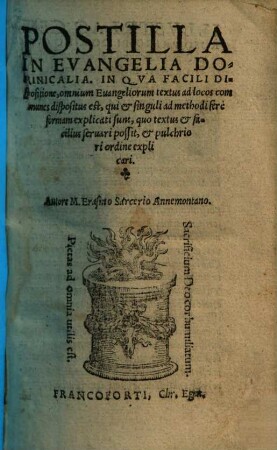 POSTILLA
IN EVANGELIA DO-
MINICALIA. IN QVA FACILI DI-
spositione, omnium Euangeliorum textus ad locos com
munes dispositus est, qui & singuli ad methodi ferè
formam explicati sunt, quo textus & fa-
cilius seruari possit, & pulchrio
ri ordine expli
cari.
Autore M. Erasmo Sarcerio Annemontano.
Pietas ad omnia utilis est.
Sacrificium Deo cor humiliatum.
FRANCOFORTI, Chr. Egen.